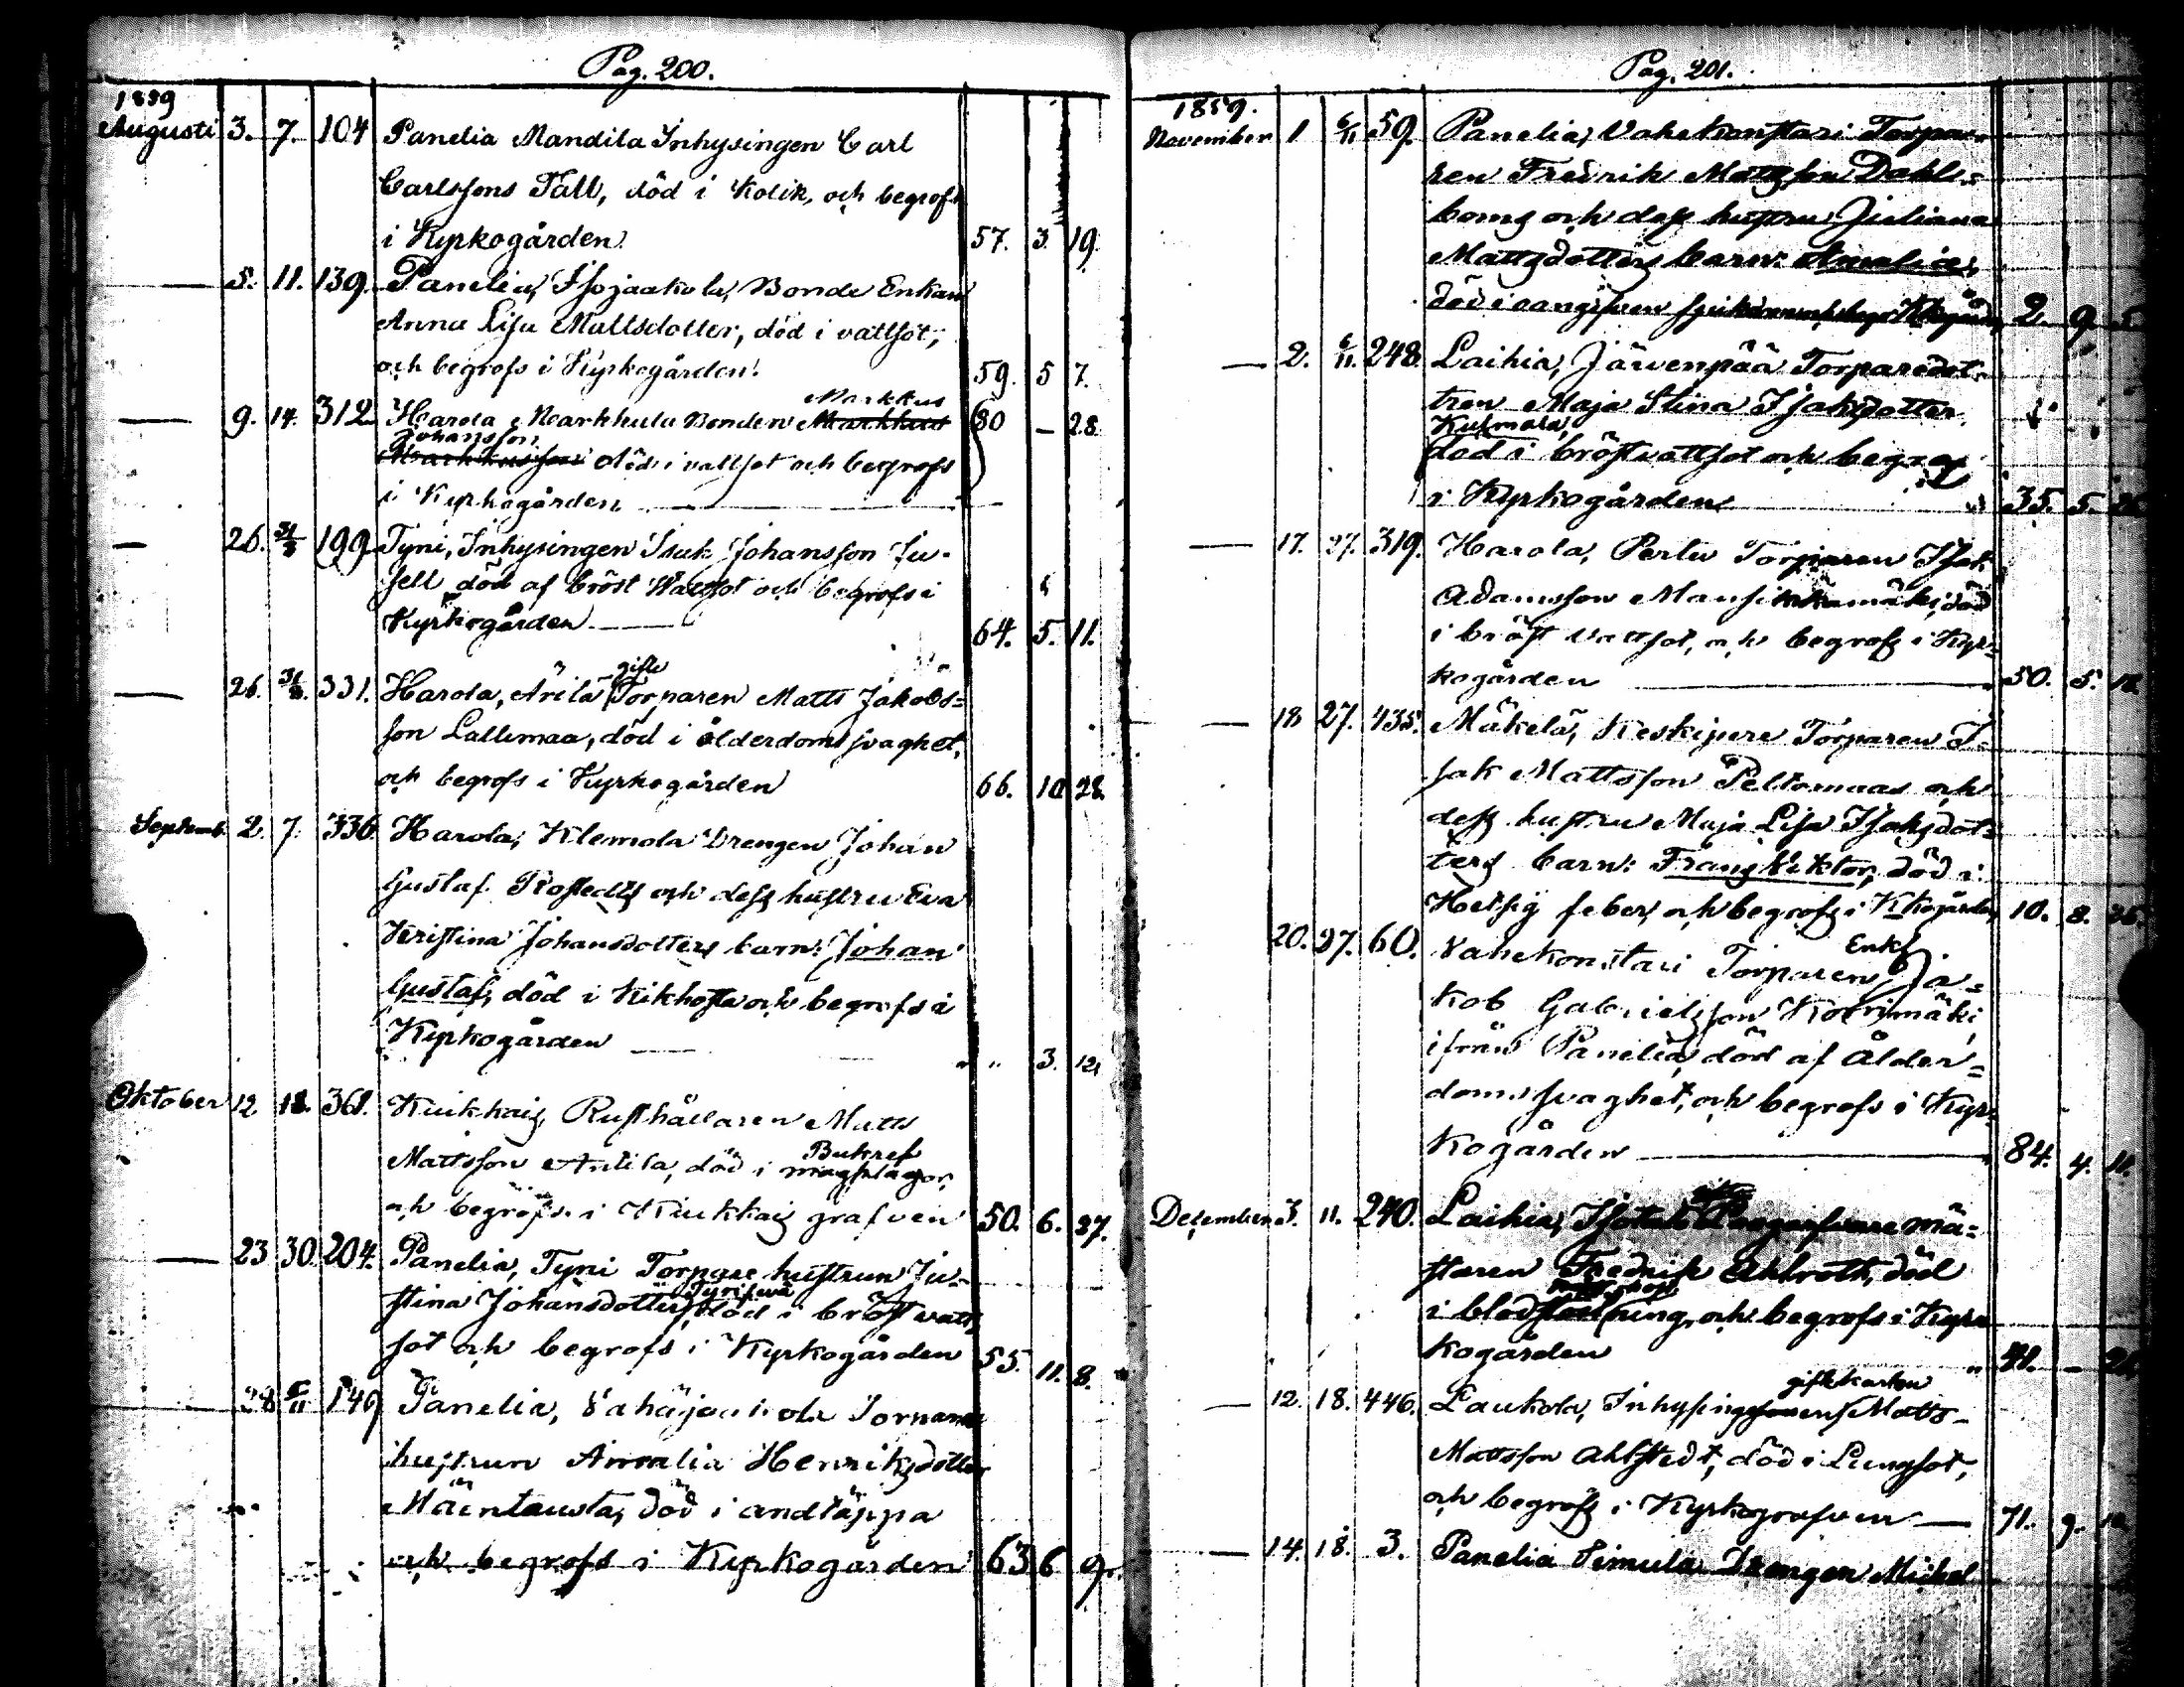 Pag. 200.
1859
Augusti 3. 7. 104 Panelia Mandila Inhysingen Carl
Carlssons Tall, död i Kolik, och begrofs
i Kyrkogården. 57. 3. 19.
— 5. 11. 139. Panelia, Isojaakola, Bonde Enkan
Anna Lisa Mattsdotter, död i vattsot,
och begrofs i Kyrkogården. 59. 5 7.
Markkus
— 9. 14. 312 Harola Markkula Bonden Markkus 80 — 28
Johansson
Markkusson död i vattsot och begrofs
i Kyrkogården —
— 26. 31/8 199 Tyni, Inhysingen Isak Johansson
död af bröst Wattsot och begrofs i
Kyrkogården — 64. 5. 11.
gifte
— 26. 31/8. 331. Harola, Ärilä Torparen Matts Jakobs=
son Lallimaa, död i ålderdomssvaghet,
och begrofs i Kyrkogården 66. 10 28.
Septemb. 2. 7. 336. Harola, Klemola Drengen Johan
Gustaf Rostedts och dess hustru Eva
Kristina Johansdotters barn: Johan
Gustaf, död i Kikhosta och begrofs i
Kyrkogården — " 3. 12,
Oktober 12 18. 361. Kiukkais, Rusthållaren Matts
Bukref
Mattsson Antila, död i magplågor,
och begrofs i Kiukkais grafven 50. 6. 27.
— 23 30. 204. Panelia, Tyni Torpare hustrun Ju-
stina Johansdotter, död i bröst vatt
sot och begrofs i Kyrkogården 55. 11. 8.
— 28 6/11 149 Panelia, Vahäjaakola Torpare
hustrun Amalia Henriksdotter
Mäentausta, död i andtäppa
och begrofs i Kyrkogården 63 6 9.
Pag. 201.
1859.
November 1 6/11 59. Panelia, Vahekonstari Torpa-
ren Fredrik Mattsson Dahl=
boms och dess hustru Juliana
Mattsdotters barn: Amalia,
död i 2. 9.
— 2. 6/11. 248. Laihia, Järvenpää Torparedot-
tren Maja Stina Isaksdotter
Kusmala,
död i bröstvattsot och begrof
i Kyrkogården 35. 5.
— 17. 27. 319. Harola, Perttu Torparen Isak
Adamsson Mansikkamäki, död
i bröst vattsot, och begrofs i Kyr=
kogården — 50. 5.
— 18 27. 435. Mäkelä, Keskipere Torparen I-
sak Mattsson Peltomaas och
dess hustru Maja Lisa Isaksdot=
ters barn: Frans Viktor, död i
Hetsig feber, och begrofs i Kkogården 10. 8.
Enkl
20. 27. 60. Vahekonstari Torparen Ja=
kob Gabrielsson Korvimäki
ifrån Panelia, död af Ålder=
domssvaghet, och begrofs i Kyr=
kogården — 84. 4.
December 3. 11. 240. Laihia, mä=
staren Fredrik Ahlroth, död
i och begrofs i Kyr
kogården
gifte karlen
— 12. 18. 446. Laukola, Inhysingen Matts
Mattsson Ahlstedt, död i Lungsot,
och begrofs i Kyrkografven — 71. 9.
— 14. 18. 3. Panelia Simula Drengen Mickel